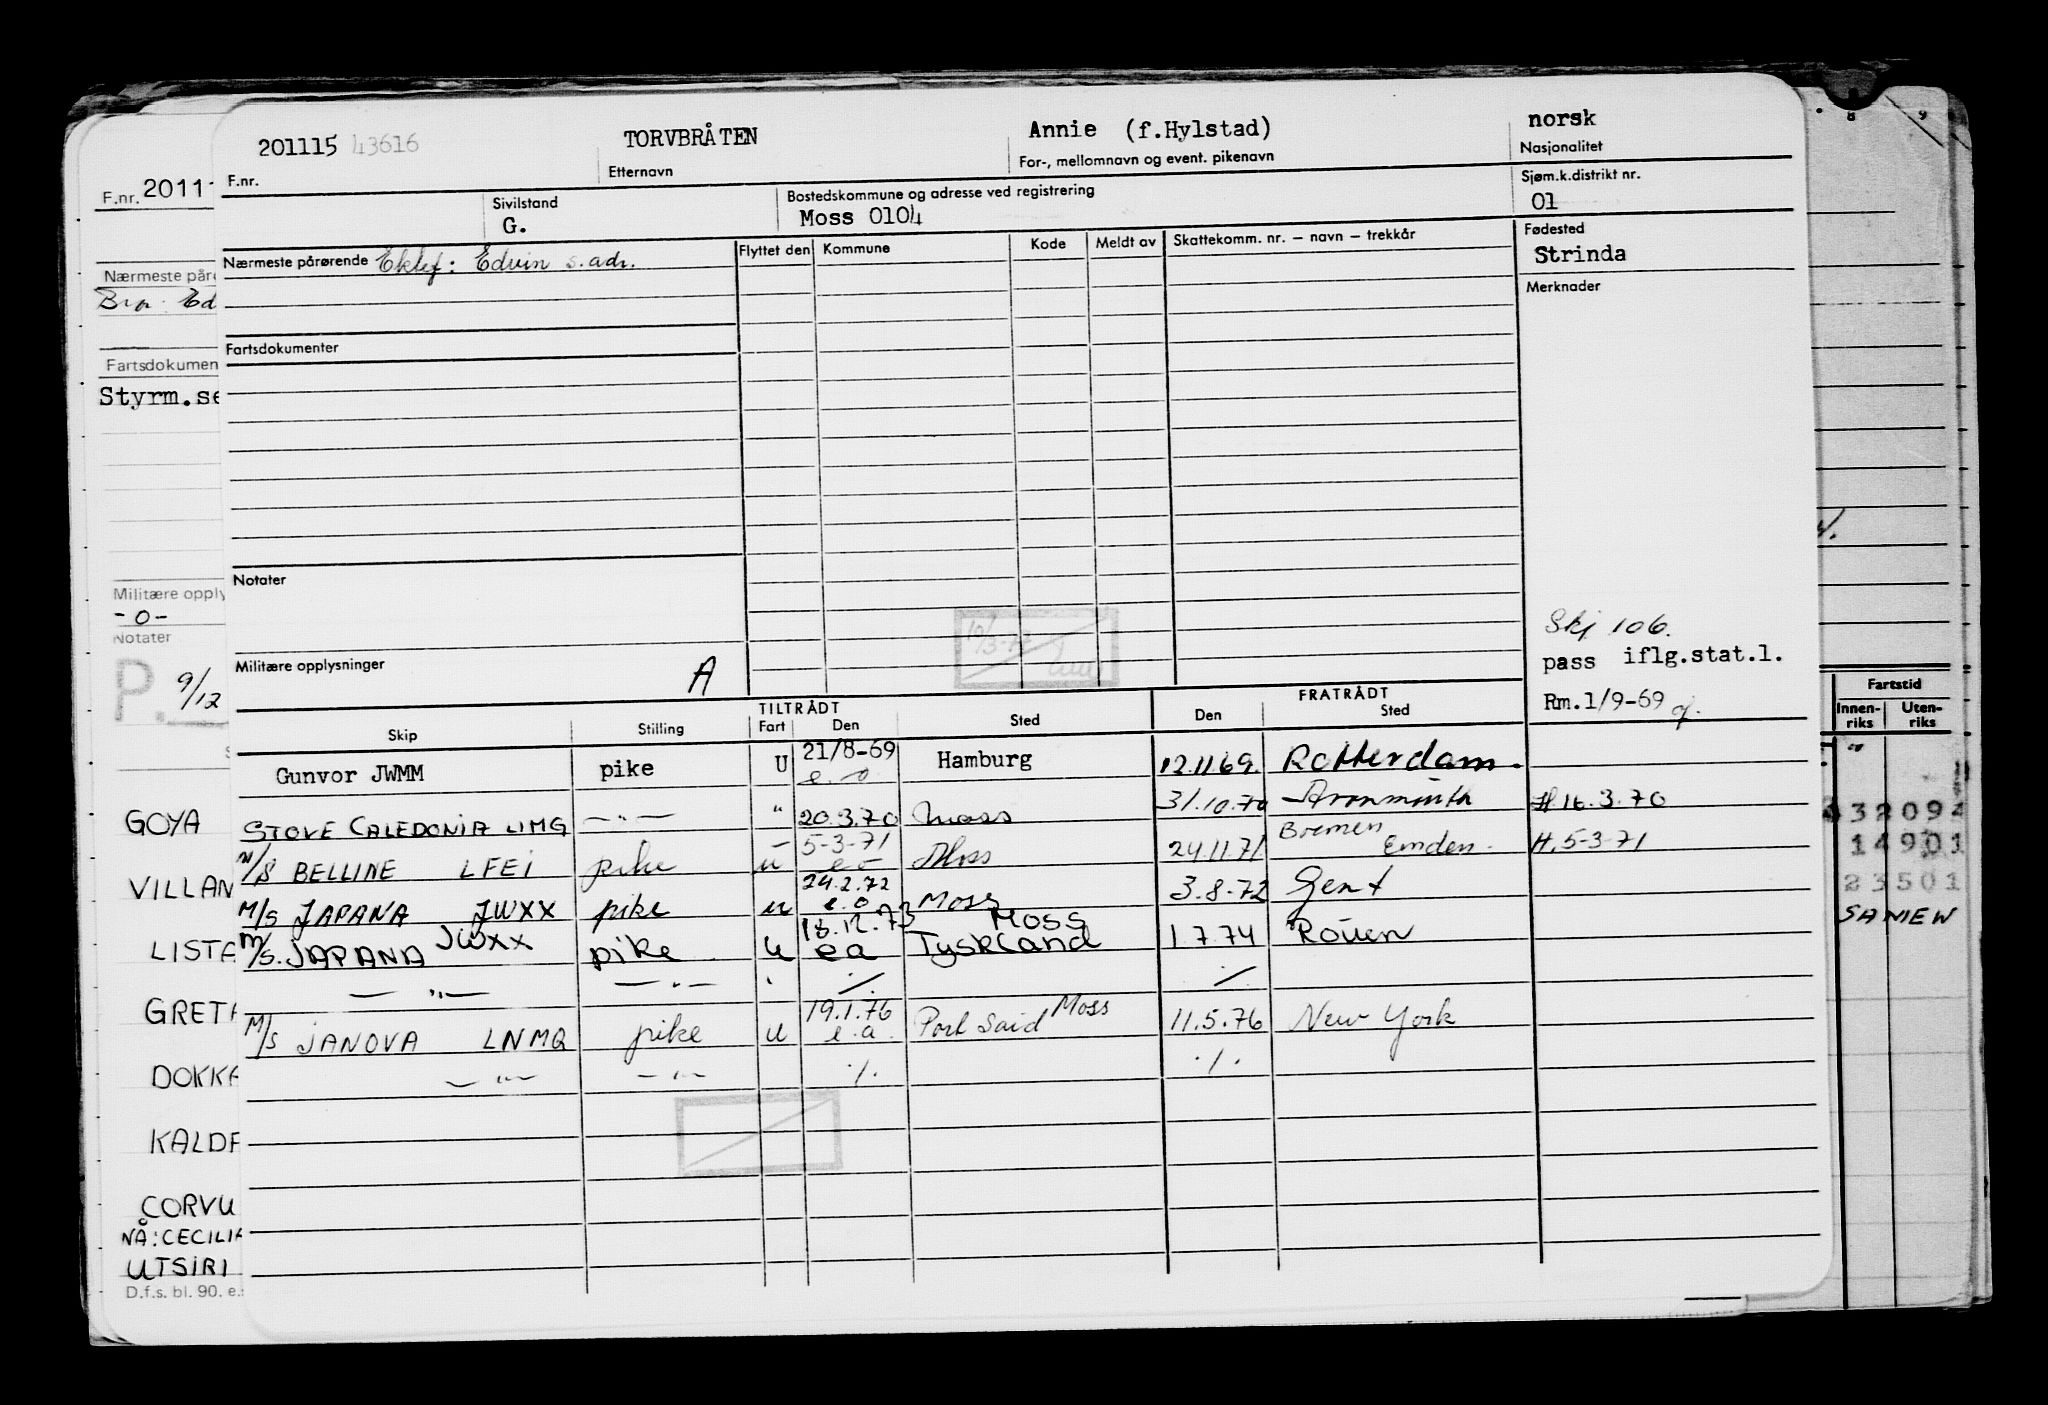 201115 43616 TORVBRÅTEN Annie (f.Hylstad) norsk
F.nr. Etternavn For-, mellomnavn og event. pikenavn Nasjonalitet
F.nr. 2011
Sivilstand Bostedskommune og adresse ved registrering Sjøm.k.distrikt nr.
G. Moss 0104 01
Nærmeste pårørende Ektef: Edvin s.adr. Flyttet den Kommune Kode Meldt av Skattekomm. nr. – navn – trekkår Fødested
Strinda
Merknader
Nærmeste påre
Fartsdokumenter
Fartsdokumen
Styrm.se
Notater
Militære opply
-0-
Notater
P. 9/12
Skj 106.
pass iflg.stat.l.
Rm.1/9-69
Militære opplysninger A
TILTRÅDT FRATRÅDT
Skip Stilling Fart Den Sted Den Sted
Fartstid
Innen-riks Uten-riks
Gunvor JWMM pike U 21/8-69 Hamburg 12.11.69. Rotterdam.
e.o
STOVE CALEDONIA LIMG —"— " 20.3.70 Moss 31.10.70 H 16.3.70
M/S BELLINE LFEI pike u 5-3-71 Moss 24.11.71 Bremen Emden. H. 5-3-71
M/S JAPANA JWXX pike u 29.2.72 e.o Moss 3.8-72 Gent
M/S. JAPANA JWXX pike U 18.12.73 ea Moss Tyskland 1 7.74 Rouen
—"— —"— " ./. ./.
M/S JANOVA LNMQ pike U 19.1.76 e.a. Port Said Moss 11.5.76 New York
—"— —"— ./. ./.
GOYA
VILLAN
LISTA
GRETA
DOKKA
KALDF
CORVU
NÅ: CECILIA
UTSIRI
D.f.s. bl. 90. e.
8 9
332094
14901
23501
SANIEW